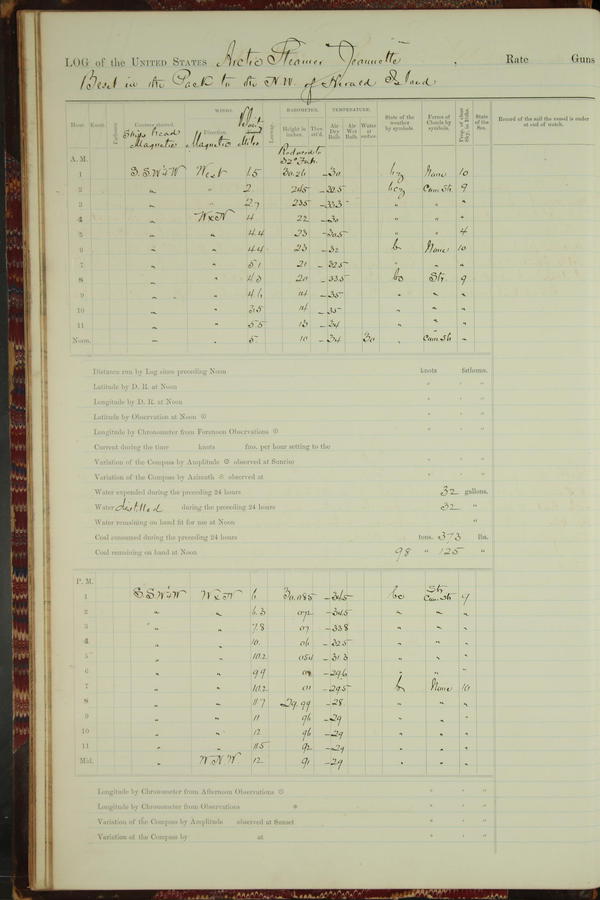 LOG of the UNITED STATES Arctic Steamer Jeannette, Rate Guns
Beset in the Pack to the N.W. of Herald Island
WINDS. BAROMETER. TEMPERATURE.
Hour. Knots. Fathoms. Courses steered. Direction. Leeway. Height in inches. Ther. att'd. Air Dry Bulb. Air Wet Bulb. Water at surface. State of the weather by symbols. Forms of Clouds by symbols. Prop. of clear Sky, in 10ths. State of the Sea. Record of the sail the vessel is under at end of watch.
Ships head Magnetic Magnetic Miles
Reduced to 32° Fah.
A. M.
1 S.S.W¼W West 1.5 30.26 -30. None 10
2 " " 2. 245 -30.5 Cum Str 9
3 " " 2.7 235 -33.3 " " "
4 " WxN 4 22 -30 " " "
5 " " 4.4 23 -30.5 " " 4
6 " " 4.4 23 -32 b None 10
7 " " 5.1 21 -32.5 " " "
8 " " 4.3 20 -33.5 bc Str 9
9 " " 4.6 14 -35 " " "
10 " " 3.5 14 -35 " " "
11 " " 5.5 13 -34 " " "
Noon. " " 5 10 -34 30 " Cum Str "
Distance run by Log since preceding Noon knots fathoms.
Latitude by D. R. at Noon ° ' "
Longitude by D. R. at Noon ° ' "
Latitude by Observation at Noon ☉ ° ' "
Longitude by Chronometer from Forenoon Observations ☉ ° ' "
Current during the time knots fms. per hour setting to the
Variation of the Compass by Amplitude ☉ observed at Sunrise ° ' "
Variation of the Compass by Azimuth ☉ observed at ° ' "
Water expended during the preceding 24 hours 32 gallons.
Water distilled during the preceding 24 hours 32 "
Water remaining on hand fit for use at Noon "
Coal consumed during the preceding 24 hours tons. 373 lbs.
Coal remaining on hand at Noon 98 " 125 "
P. M.
1 S.S.W¼W WxN 6 30.085 -34.5 bc Str Cum Str 9
2 " " 6.3 072 -34.5 " " "
3 " " 7.8 07 -33.8 " " "
4 " " 10. 06 -32.5 " " "
5 " " 10.2 054 -31.3 " " "
6 " " 9.9 -29.6 " " "
7 " " 10.2 01 -29.5 b None 10
8 " " 11.7 29.99 -28. " " "
9 " " 11 96 -29 " " "
10 " " 12 96 -29 " " "
11 " " 11.5 92 -29 " " "
Mid. " W.N.W. 12 91 -29 " " "
Longitude by Chronometer from Afternoon Observations ☉ ° ' "
Longitude by Chronometer from Observations * ° ' "
Variation of the Compass by Amplitude observed at Sunset ° ' "
Variation of the Compass by at ° ' "